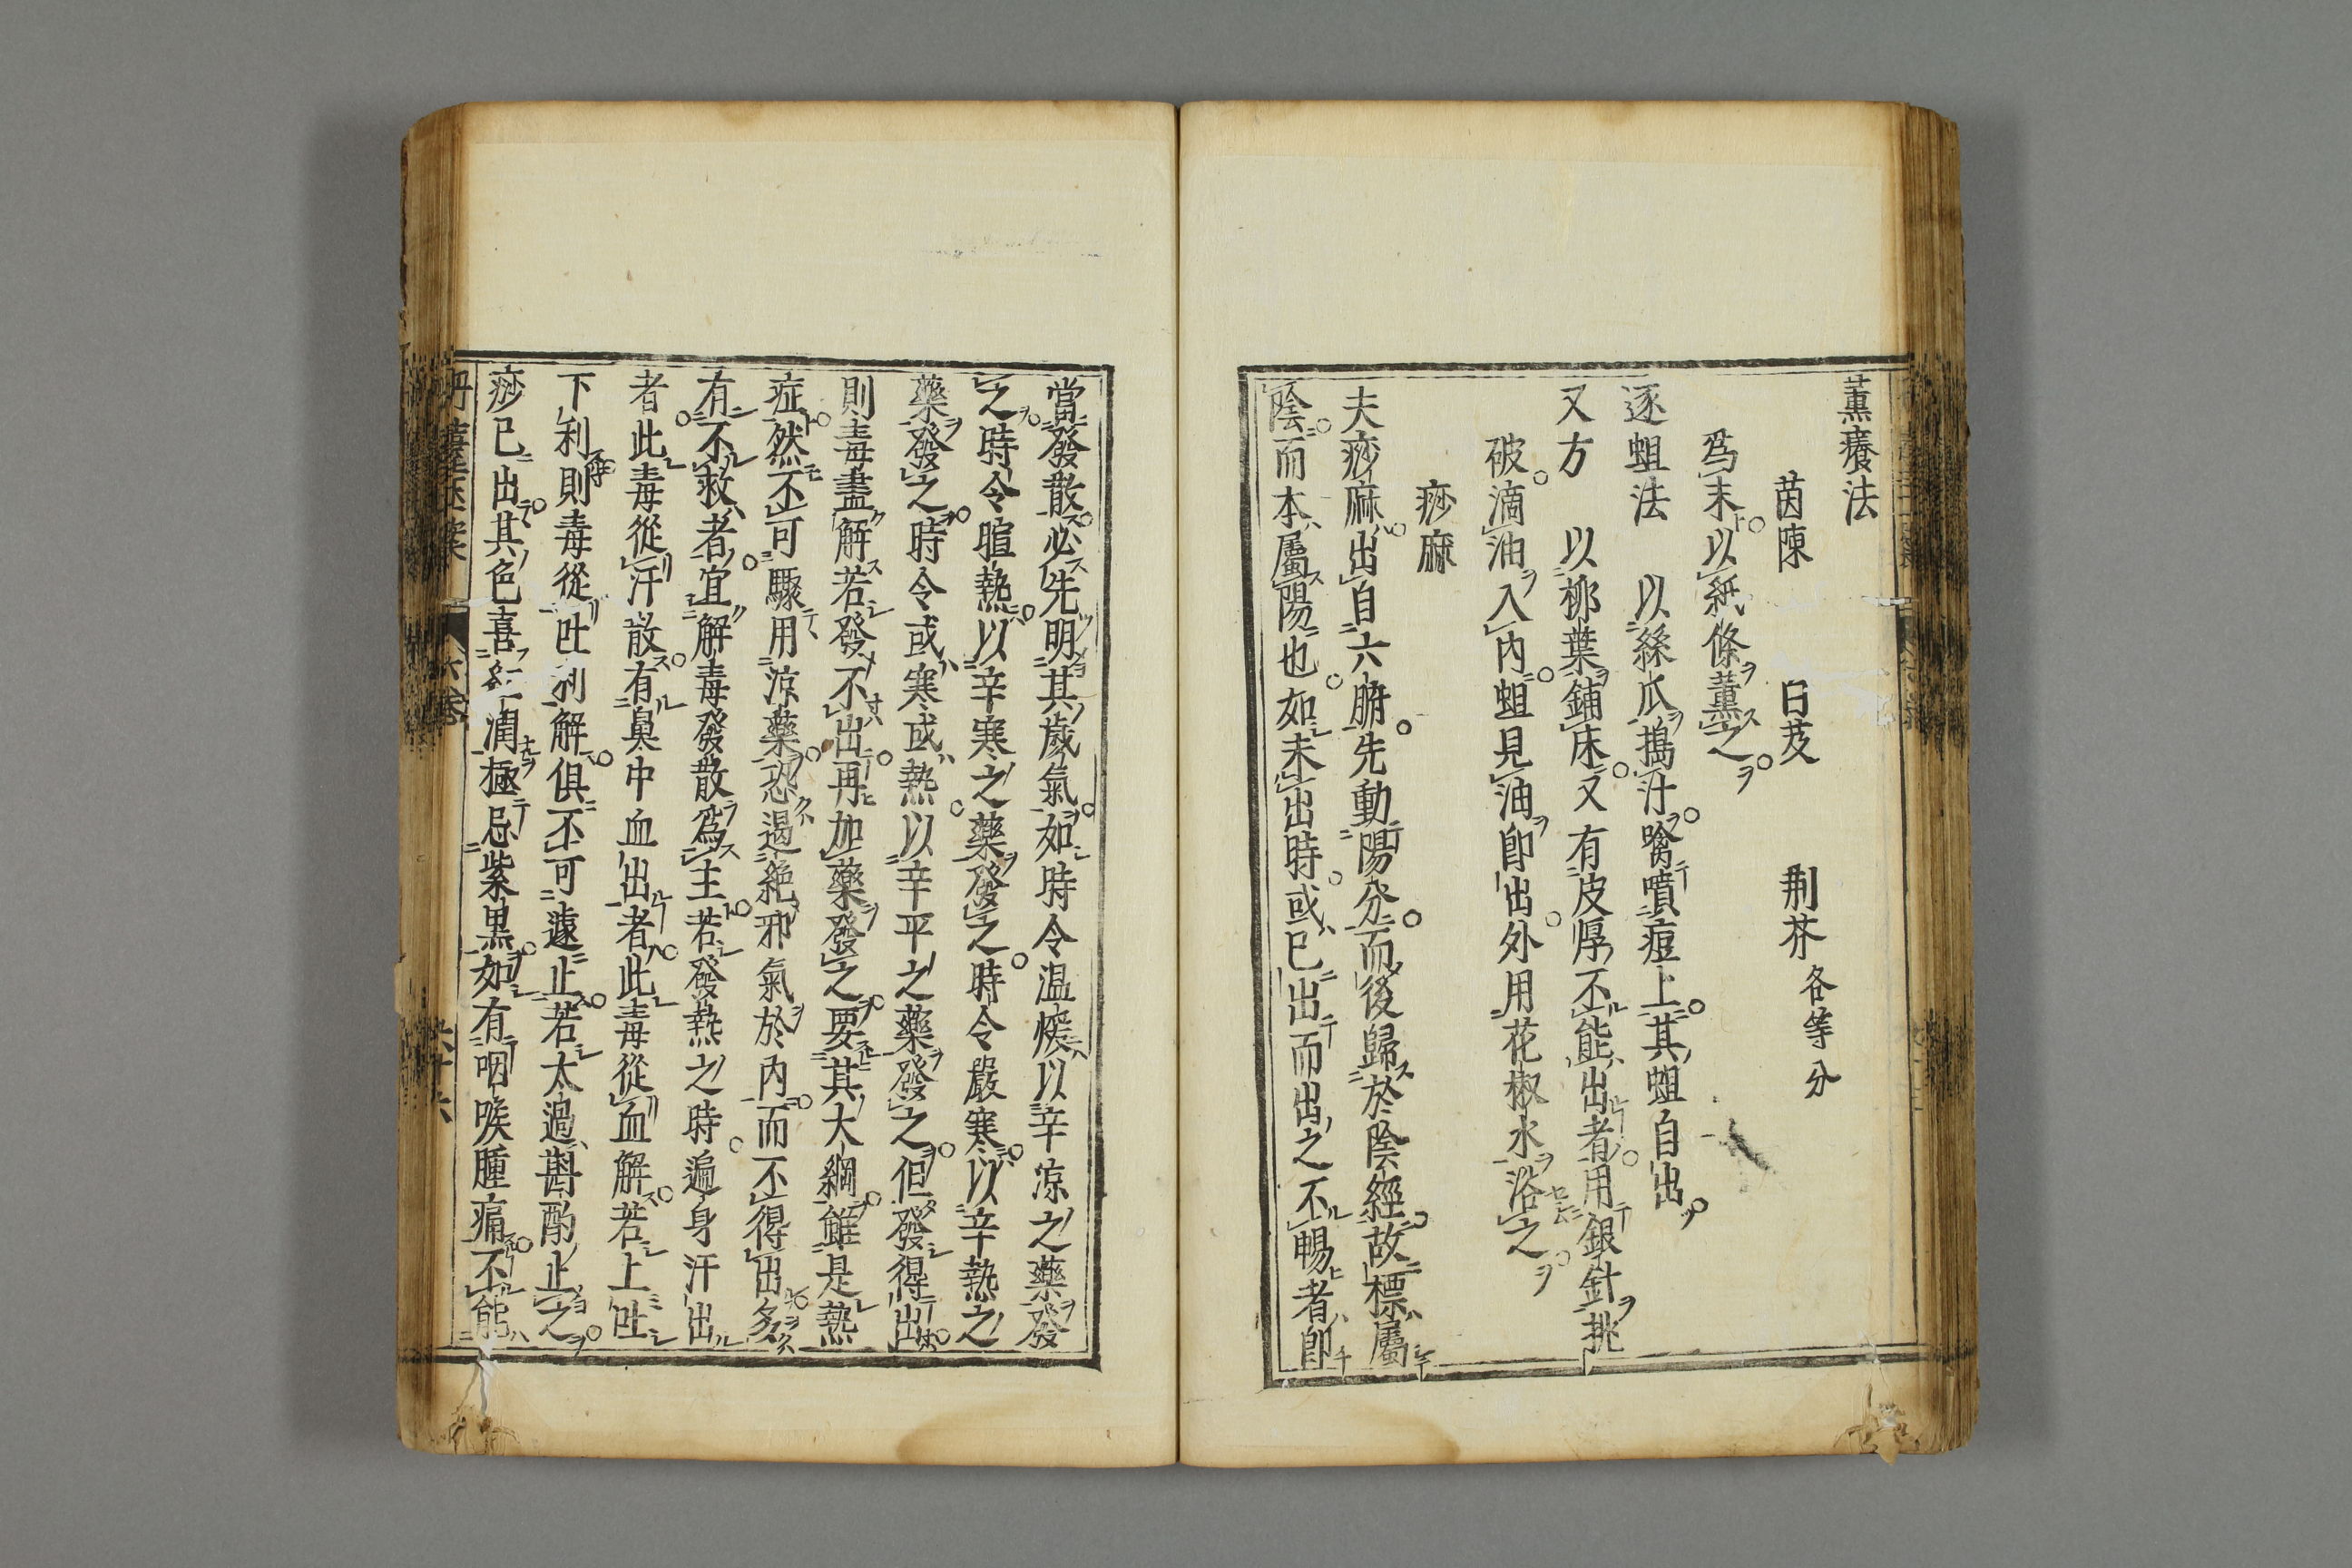 薰癢法
茵陳 白芨 荆芥 各等分
爲末以紙條薰之
逐蛆法 以絲瓜搗汁噙噴痘上其蛆自出
又方 以桺葉鋪床又有皮厚不能出者用銀針挑
破滴油入內蛆見油卽出外用花椒水浴之
痧麻
夫痧麻出自六腑先動陽分而後歸於陰經故標屬
陰而本屬陽也如未出時或已出而出之不暢者卽
當發散必先明其歲氣如時令温煖以辛凉之藥發
之時令暄熱以辛寒之藥發之時令嚴寒以辛熱之
藥發之時令或寒或熱以辛平之藥發之但發得出
則毒盡解若發不出再加藥發之要其大綱雖是熱
症然不可驟用凉藥恐遏絶邪氣於內而不得出多
有不救者宜解毒發散爲主若發熱之時遍身汗出
者此毒從汗散有鼻中血出者此毒從血解若上吐
下利則毒從吐利解俱不可遽止若太過斟酌止之
痧已出其色喜紅潤極忌紫黒如有咽喉腫痛不能
六卷
六十六